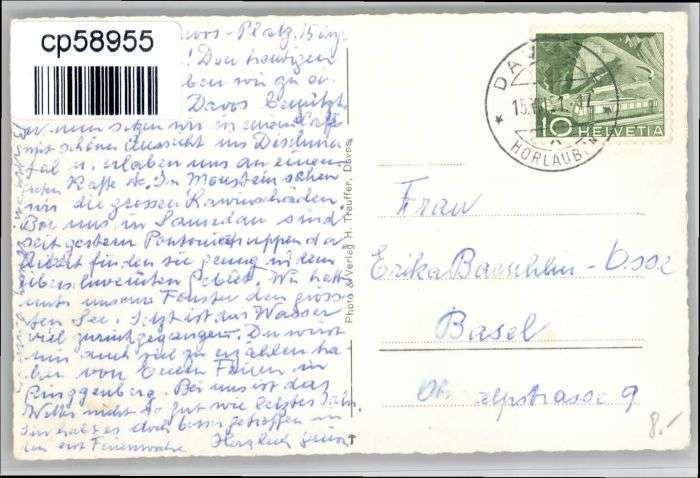 cp58955
Davos-Platz, 15 Aug.
! Den heutigen
ben wir zu
Davos benützt
nun sitzen wir in einem Café
mit schöner Aussicht ins Dischma
tal u. erlaben uns an einem
guten Kaffe etc. In Monstein sahen
wir die grossen Lawinenschäden.
Bei uns in Samedan sind
seit gestern Pontoniertruppen da
Arbeit finden sie genug in dem
überschwemmten Gebiet. Wir hatten
unter unserm Fenster den gröss
ten See. Jetzt ist das Wasser
viel zurückgegangen. Du wirst
uns auch viel zu erzählen ha
ben von Euren Ferien in
Ringgenberg. Bei uns ist das
Wetter nicht so gut wie letztes Jahr.
Ihr habt es doch besser getroffen in
der erst Ferienwoche Herzlich grüsst
Photo & Verlag H. Trauffer, Davos
DAVOS
15.VIII.51-17
HORLAUBEN
10 HELVETIA
Frau
Erika Baeschlin-Osse
Basel
alpstrasse 9
8.-